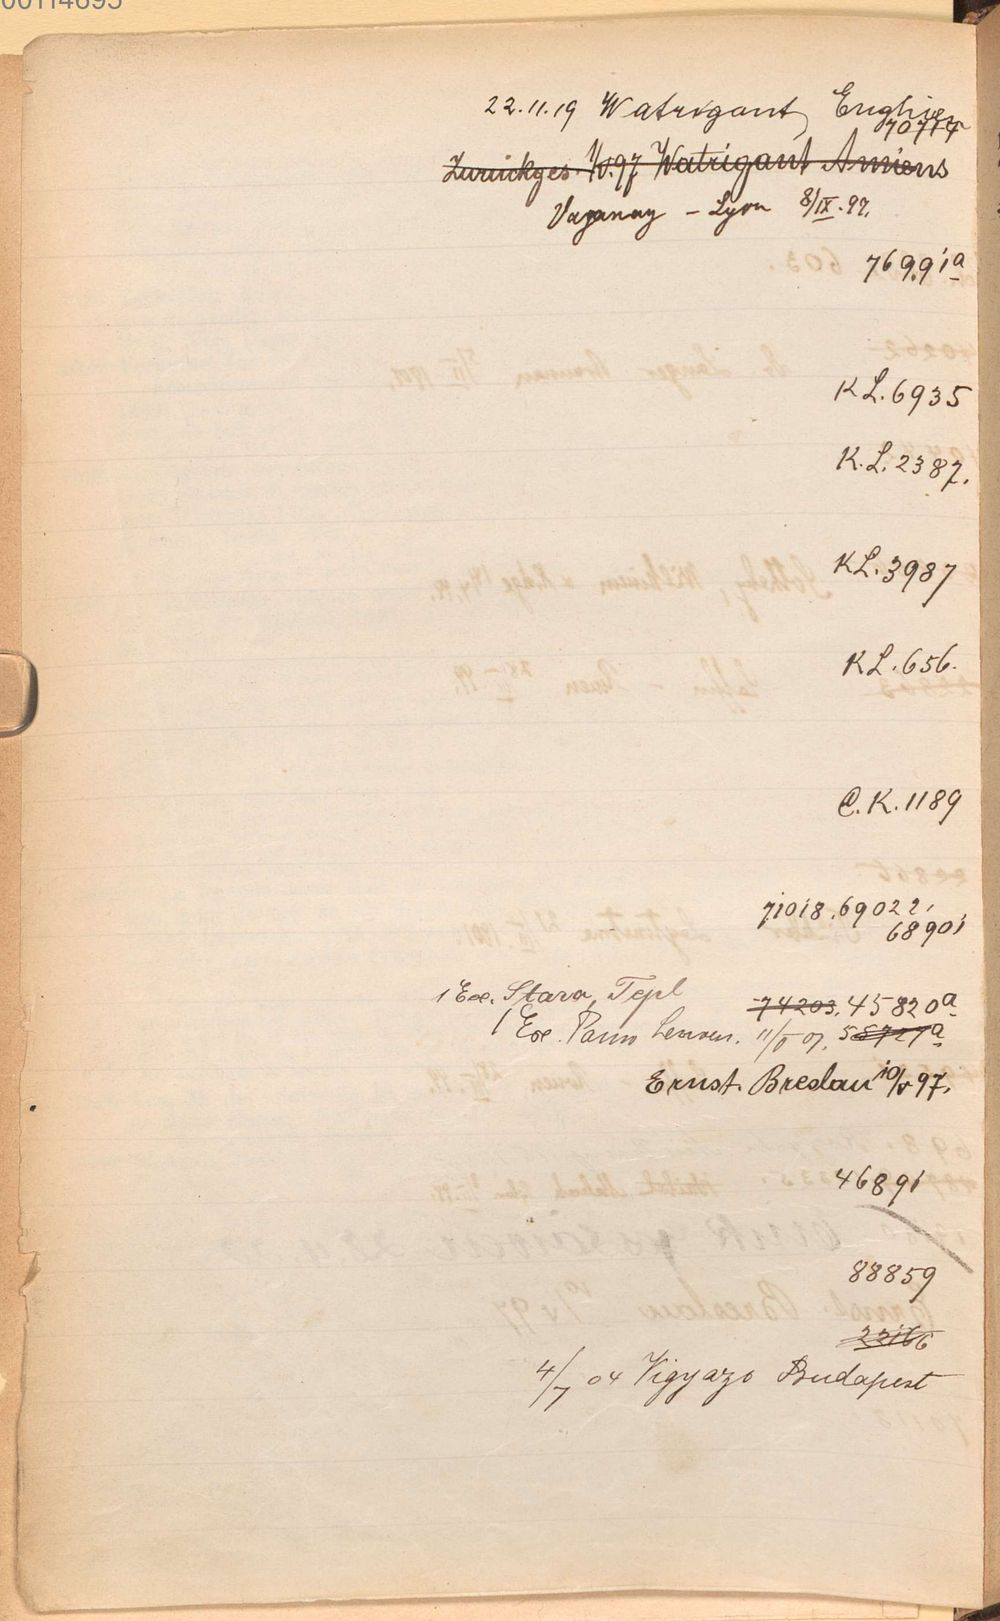 00114695
22.11.19 Watrigant, Enghien
70714
Zurückges. 1/V.97 Watrigant Amiens
Vaganay - Lyon 8/IX.97.
769.91a
KL.6935
K.L.2387.
KL.3987
KL.656.
C.K.1189
71018.69022.
68901
1 Ex. Stara, Tepl 74203. 45820a
1 Ex. Leuven. 11/V 07. 58727a
Ernst. Breslau 10/V 97.
46891
88859
22166
4/7 04 Vigyazo Budapest